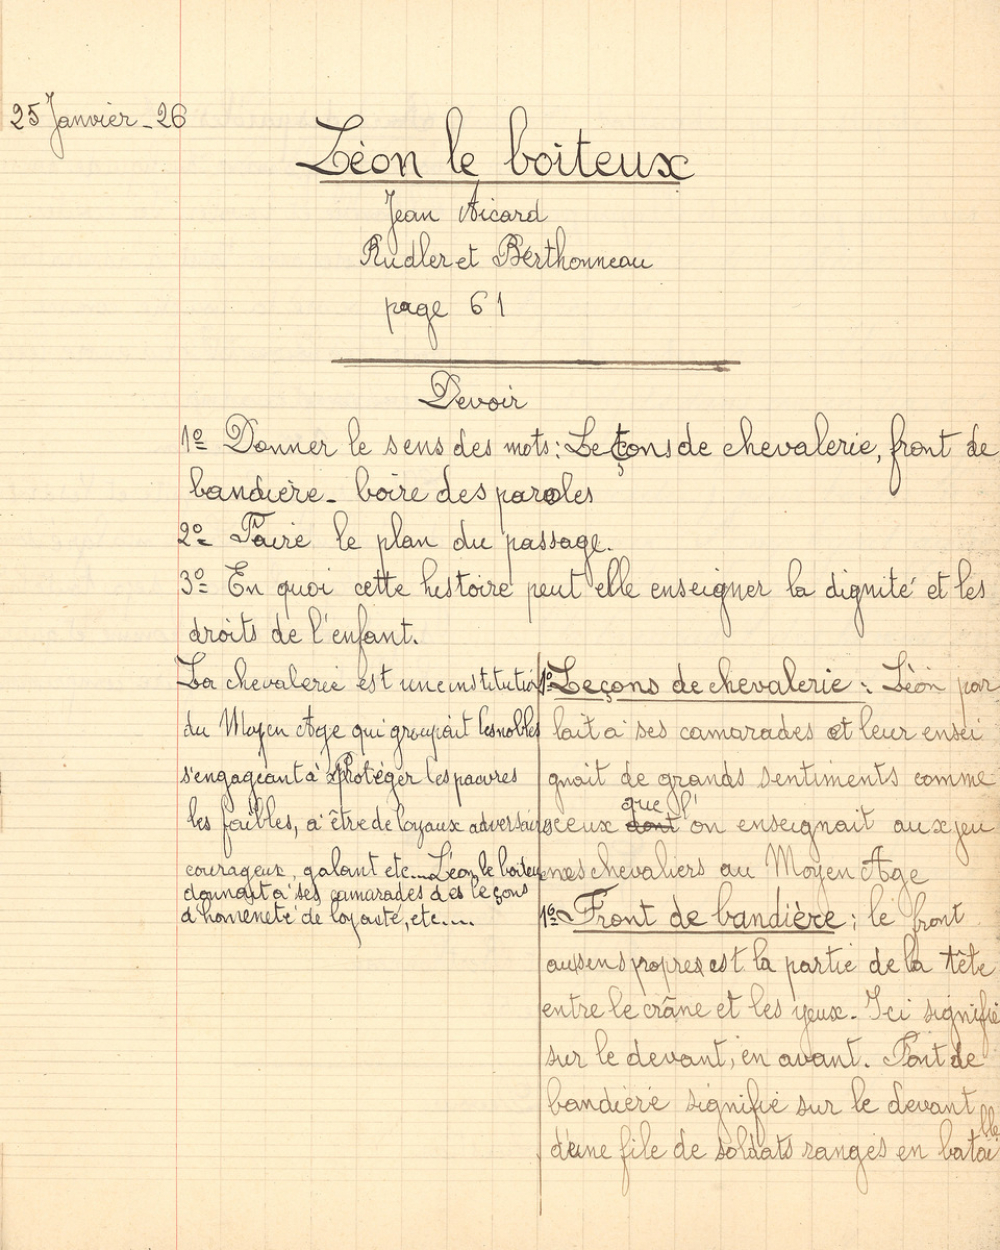 25 Janvier - 26
Léon le boiteux
Jean Aicard
Rudler et Berthonneau
page 61
Devoir
1º Donner le sens des mots : Leçons de chevalerie, front de
bandière - boire des paroles
2º- Faire le plan du passage.
3º- En quoi cette histoire peut elle enseigner la dignité et les
droits de l'enfant.
La chevalerie est une institution
du Moyen Age qui groupait les nobles
s'engageant à protéger les pauvres
les faibles, à être de loyaux adversaires
courageux, galant etc.... Léon le boiteux
donnait à ses camarades des leçons
d'honneneté de loyauté, etc.....
1º Leçons de chevalerie : Léon par
lait à ses camarades et leur ensei
gnait de grands sentiments comme
ceux dont que l'on enseignait aux jeu
nes chevaliers au Moyen Age
1º- Front de bandière : le front
au sens propre est la partie de la tête
entre le crâne et les yeux. Ici signifie
sur le devant, en avant. Font de
bandière signifie sur le devant
d'une file de soldats rangés en bataille